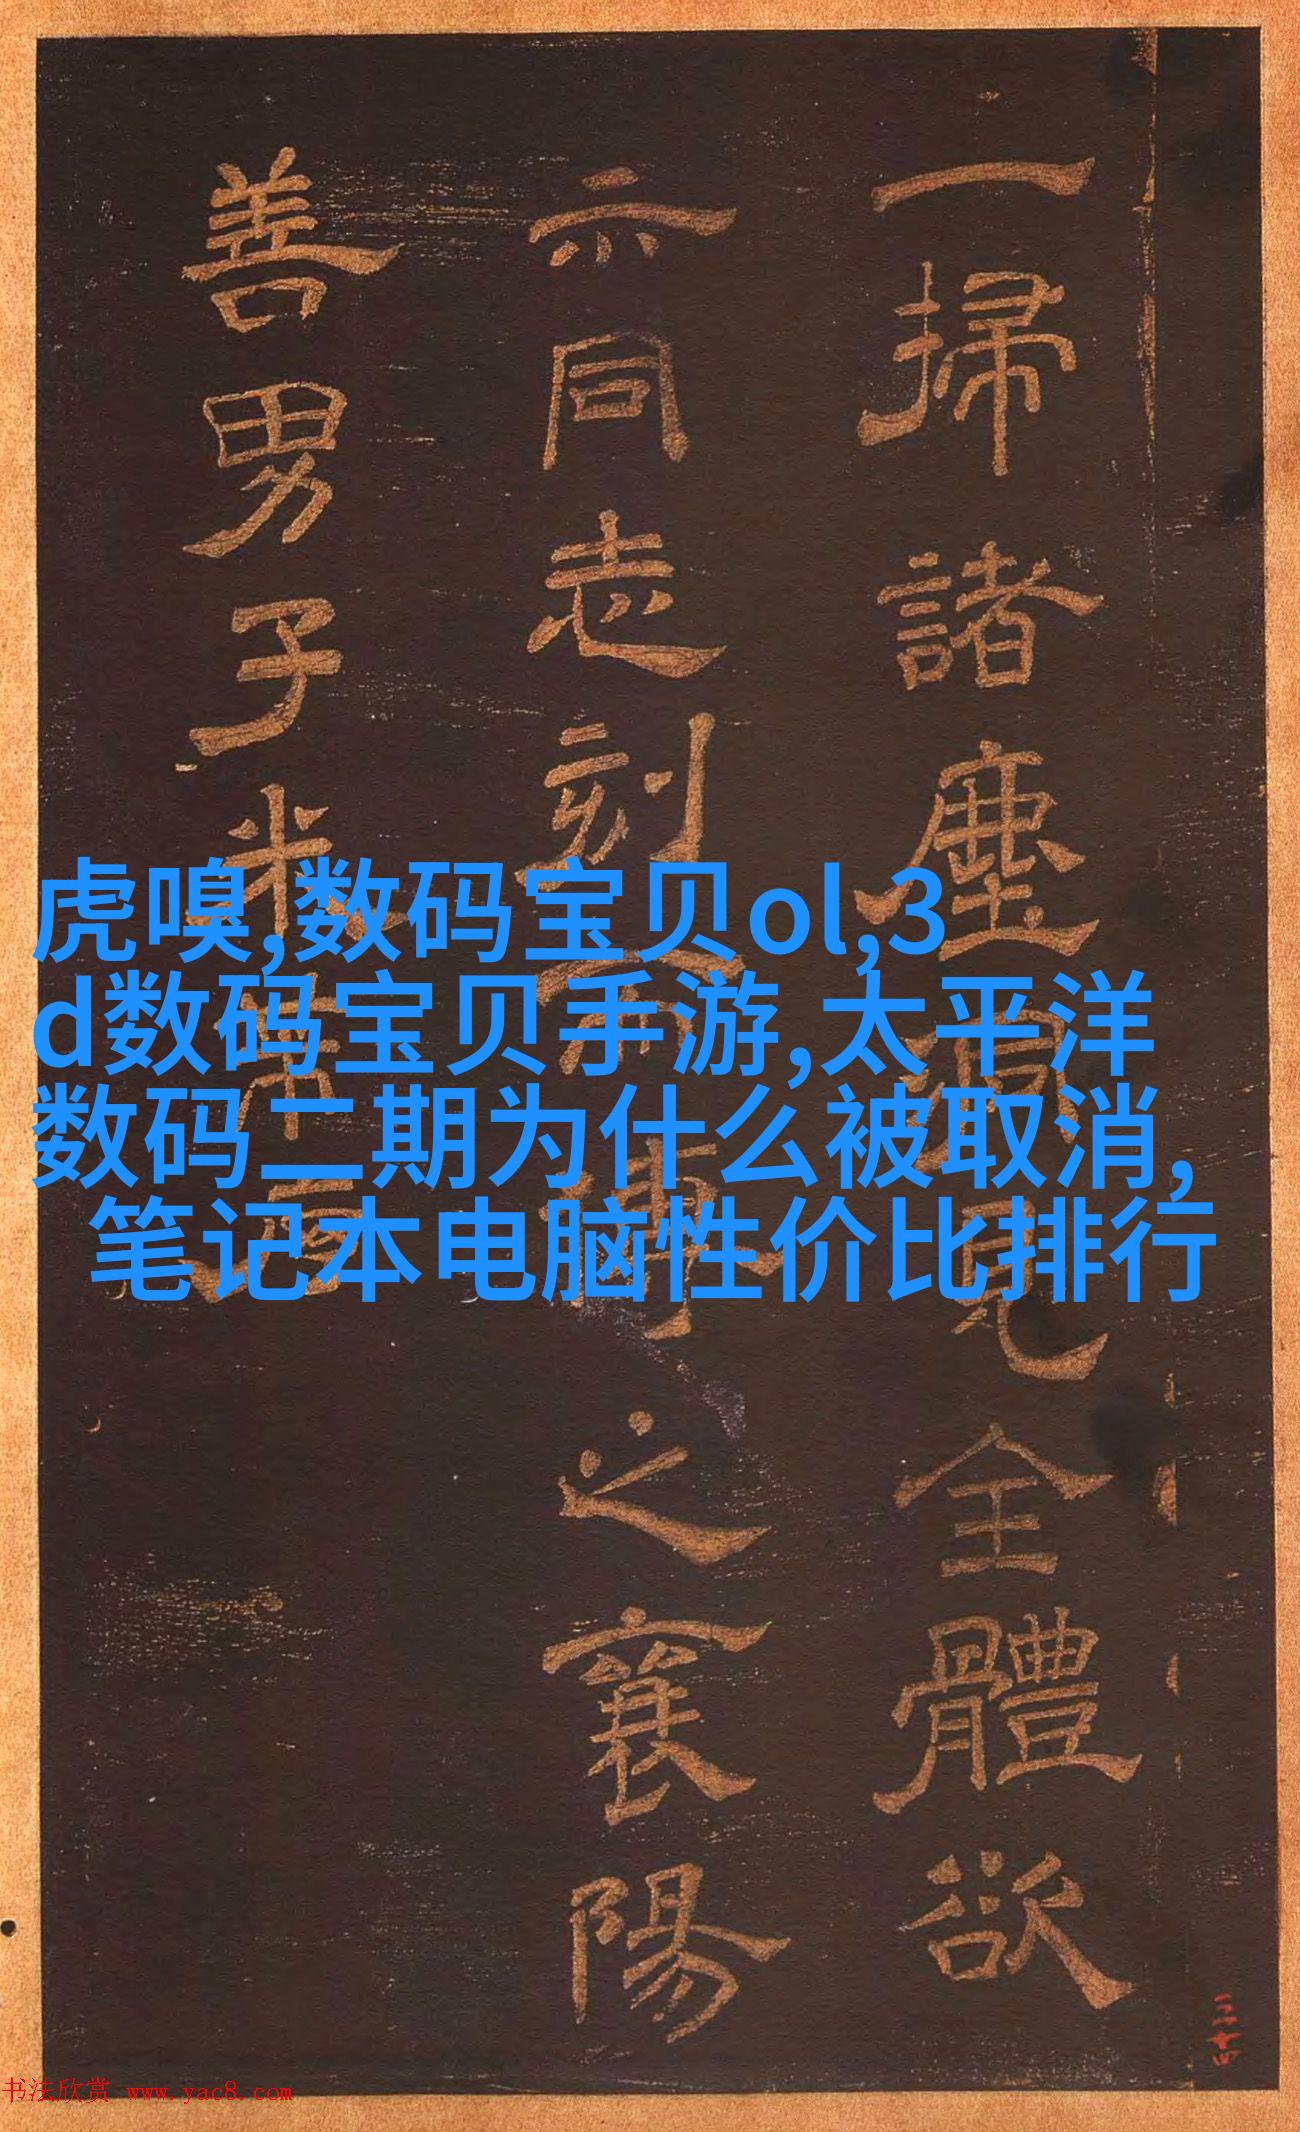 虎嗅,数码宝贝ol,3
d数码宝贝手游,太平洋
数码二期为什么被取消,
笔记本电脑性价比排行
一掃諸塵洞見全體欲
示同志刻而傳之襄陽
善男子米芾
三十四
书法欣赏 www.yac8.com